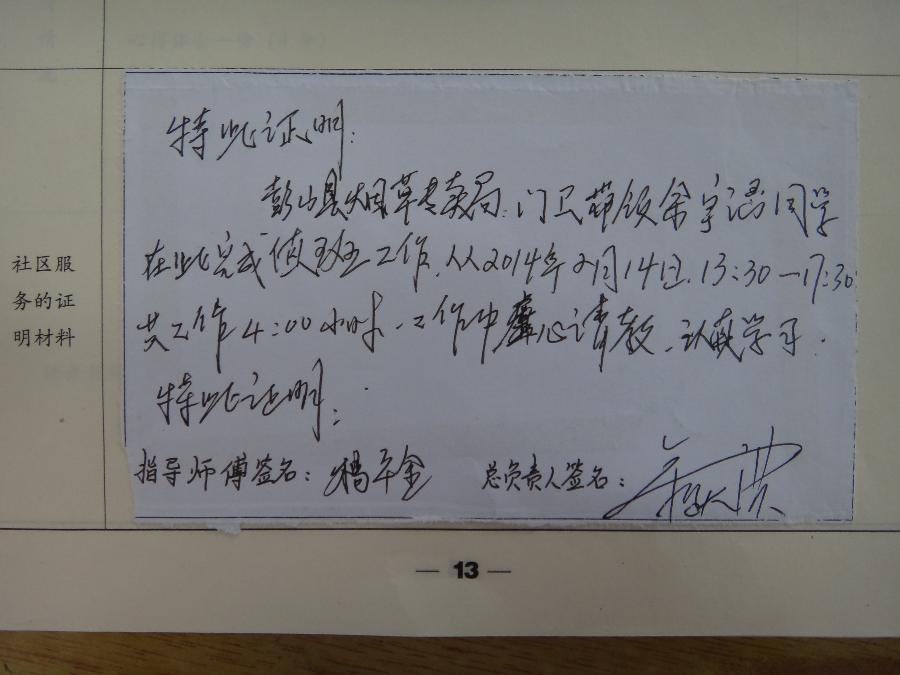 社区服
务的证
明材料
特此证明:
彭山县烟草专卖局:门卫带领余宇涵同学
在此完成值班工作,从2014年2月14日.13:30—17:30
共工作4:00小时.工作中虚心请教、认真学习.
特此证明:
指导师傅签名:杨平金
总负责人签名:
— 13 —